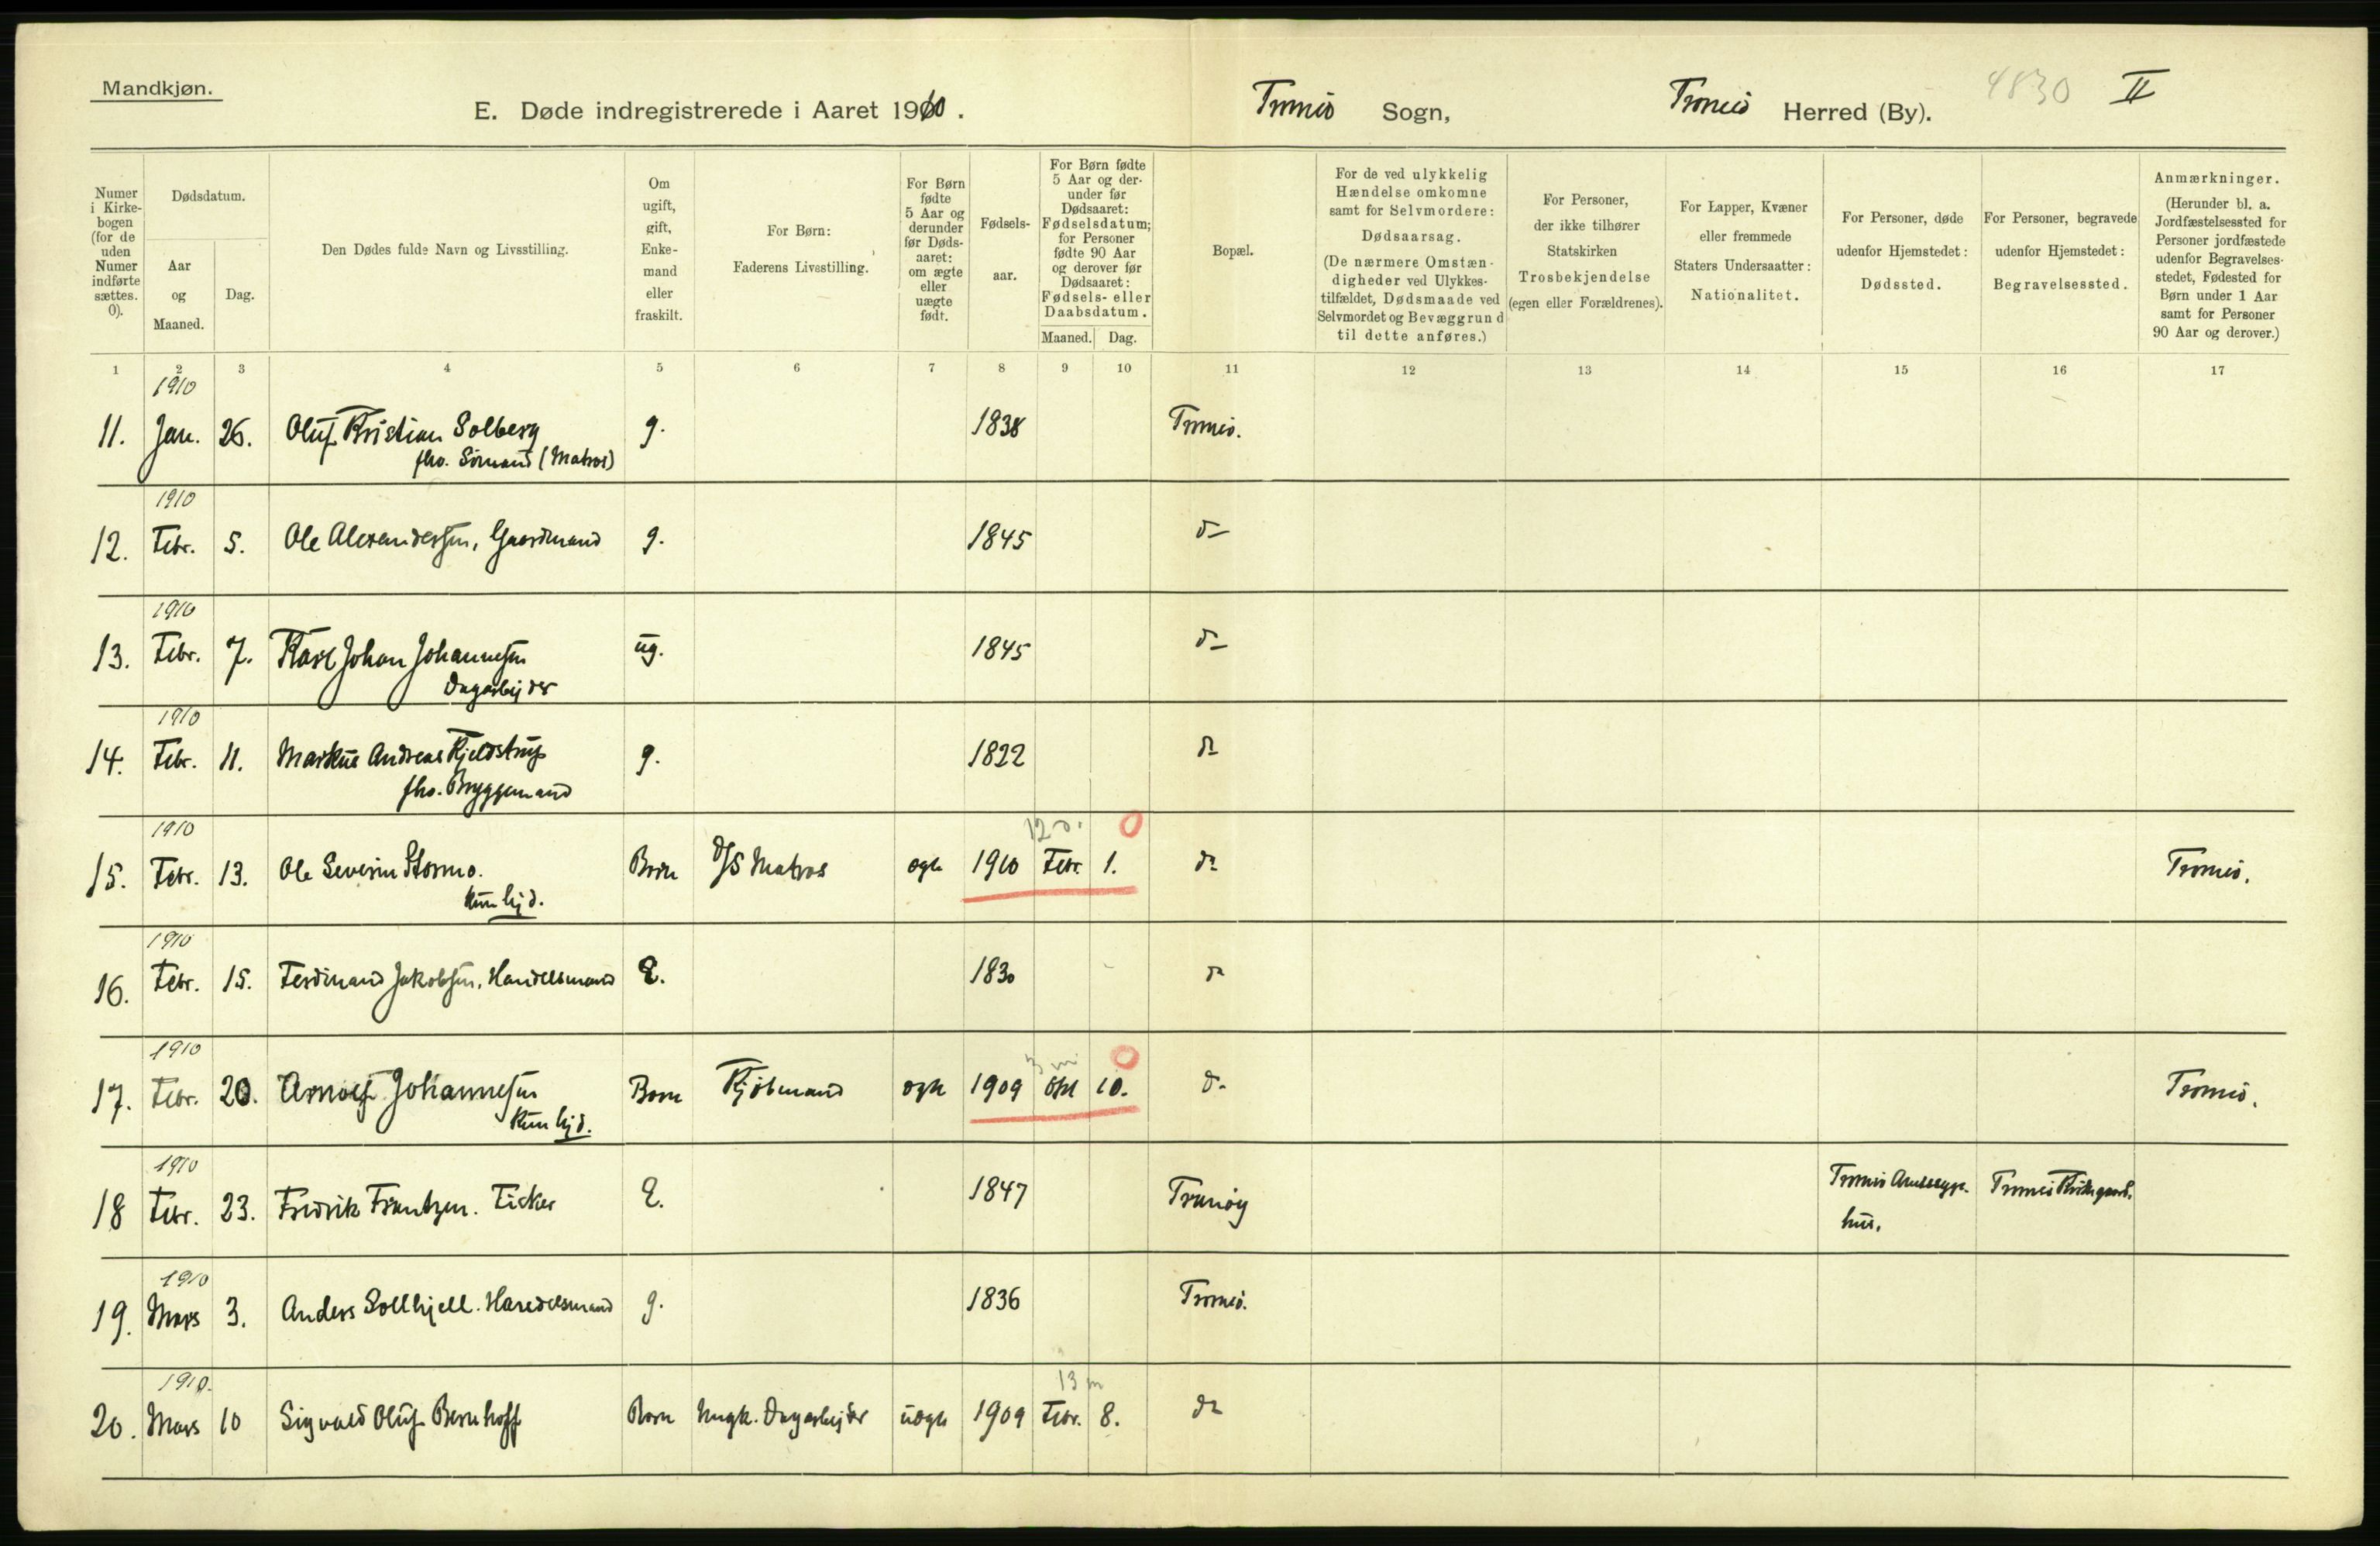 Mandkjøn.
E. Døde indregistrerede i Aaret 1910.
Tromsø Sogn,
Tromsø Herred (By).
4830 II
Numer i Kirkebogen (for de uden Numer indførte sættes. 0).
Dødsdatum.
Aar og Maaned.
Dag.
Den Dødes fulde Navn og Livsstilling.
Om ugift, gift, Enkemand eller fraskilt.
For Børn: Faderens Livsstilling.
For Børn fødte 5 Aar og derunder før Dødsaaret: om ægte eller uægte født.
Fødselsaar.
For Børn fødte 5 Aar og derunder før Dødsaaret: Fødselsdatum; for Personer fødte 90 Aar og derover før Dødsaaret: Fødsels- eller Daabsdatum.
Maaned. Dag.
Bopæl.
For de ved ulykkelig Hændelse omkomne samt for Selvmordere: Dødsaarsag. (De nærmere Omstændigheder ved Ulykkestilfældet, Dødsmaade ved Selvmordet og Bevæggrund til dette anføres.)
For Personer, der ikke tilhører Statskirken Trosbekjendelse (egen eller Forældrenes).
For Lapper, Kvæner eller fremmede Staters Undersaatter: Nationalitet.
For Personer, døde udenfor Hjemstedet: Dødssted.
For Personer, begravede udenfor Hjemstedet: Begravelsessted.
Anmærkninger. (Herunder bl. a. Jordfæstelsessted for Personer jordfæstede udenfor Begravelsesstedet, Fødested for Børn under 1 Aar samt for Personer 90 Aar og derover.)
1 2 3 4 5 6 7 8 9 10 11 12 13 14 15 16 17
1910
11. Jan. 26. Oluf Kristian Solberg g. 1838 Tromsø.
fhv. Sømand (Matros)
1910
12. Febr. 5. Ole Alexandersen, Gaardmand g. 1845 do
1910
13. Febr. 7. Karl Johan Johannesen ug. 1845 do
Dagarbejder
1910
14. Febr. 11. Markus Andreas Kjeldstrup g. 1822 do
fhv. Bryggemand
1910 12 d. 0
15. Febr. 13. Ole Severin Stormo. Barn D/S Matros ægte 1910 Febr. 1. do Tromsø.
kun lyd.
1910
16. Febr. 15. Ferdinand Jakobsen, Handelsmand E. 1830 do
1910 3 m 0
17. Febr. 20. Arnolf Johannesen Barn Kjøbmand ægte 1909 Okt 10. do Tromsø.
kun lyd.
1910
18 Febr. 23. Fredrik Frantzen. Fisker E. 1847 Tranøy Tromsø Amtssyge- Tromsø Kirkegaard.
hus.
1910
19. Mars 3. Anders Sollhjell. Handelsmand g. 1836 Tromsø.
1910. 13 m
20. Mars 10 Sigvald Oluf Bernhoff Barn Ungk. Dagarbejder uægte 1909 Febr. 8. do